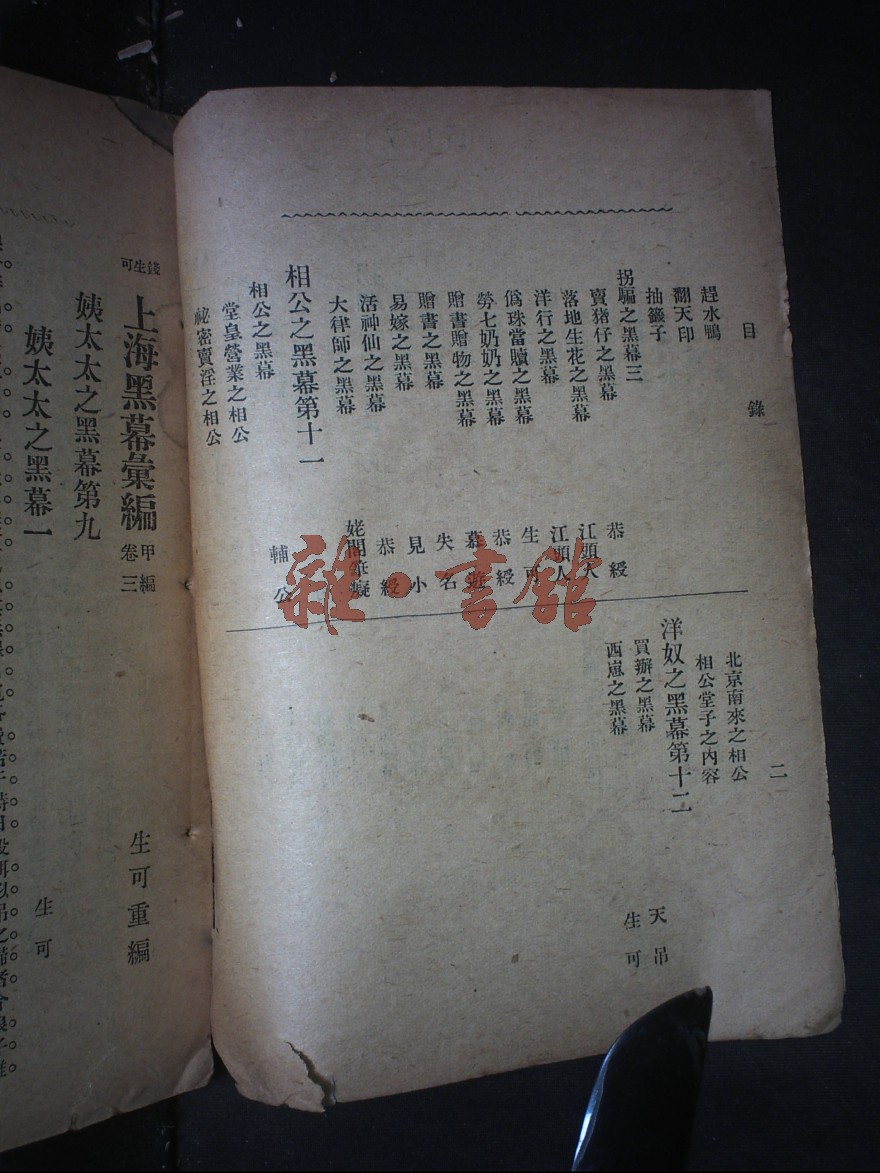 目錄
二
趕水鴨
翻天印
抽籤子
拐騙之黑幕三
賣猪仔之黑幕
恭綬
落地生花之黑幕
江頭人
洋行之黑幕
江頭人
僞珠當贖之黑幕
生可
勞七奶奶之黑幕
恭綬
贈書贈物之黑幕
贈書之黑幕
失名
易嫁之黑幕
見小
活神仙之黑幕
恭綬
大律師之黑幕
姥閣筆癡
相公之黑幕第十一
相公之黑幕
輔公
堂皇營業之相公
祕密賣淫之相公
北京南來之相公
相公堂子之內容
洋奴之黑幕第十二
買辦之黑幕
天吊
西崽之黑幕
生可
錢生可
上海黑幕彙編
甲編
卷三
生可重編
姨太太之黑幕第九
姨太太之黑幕一
生可
雜·書館